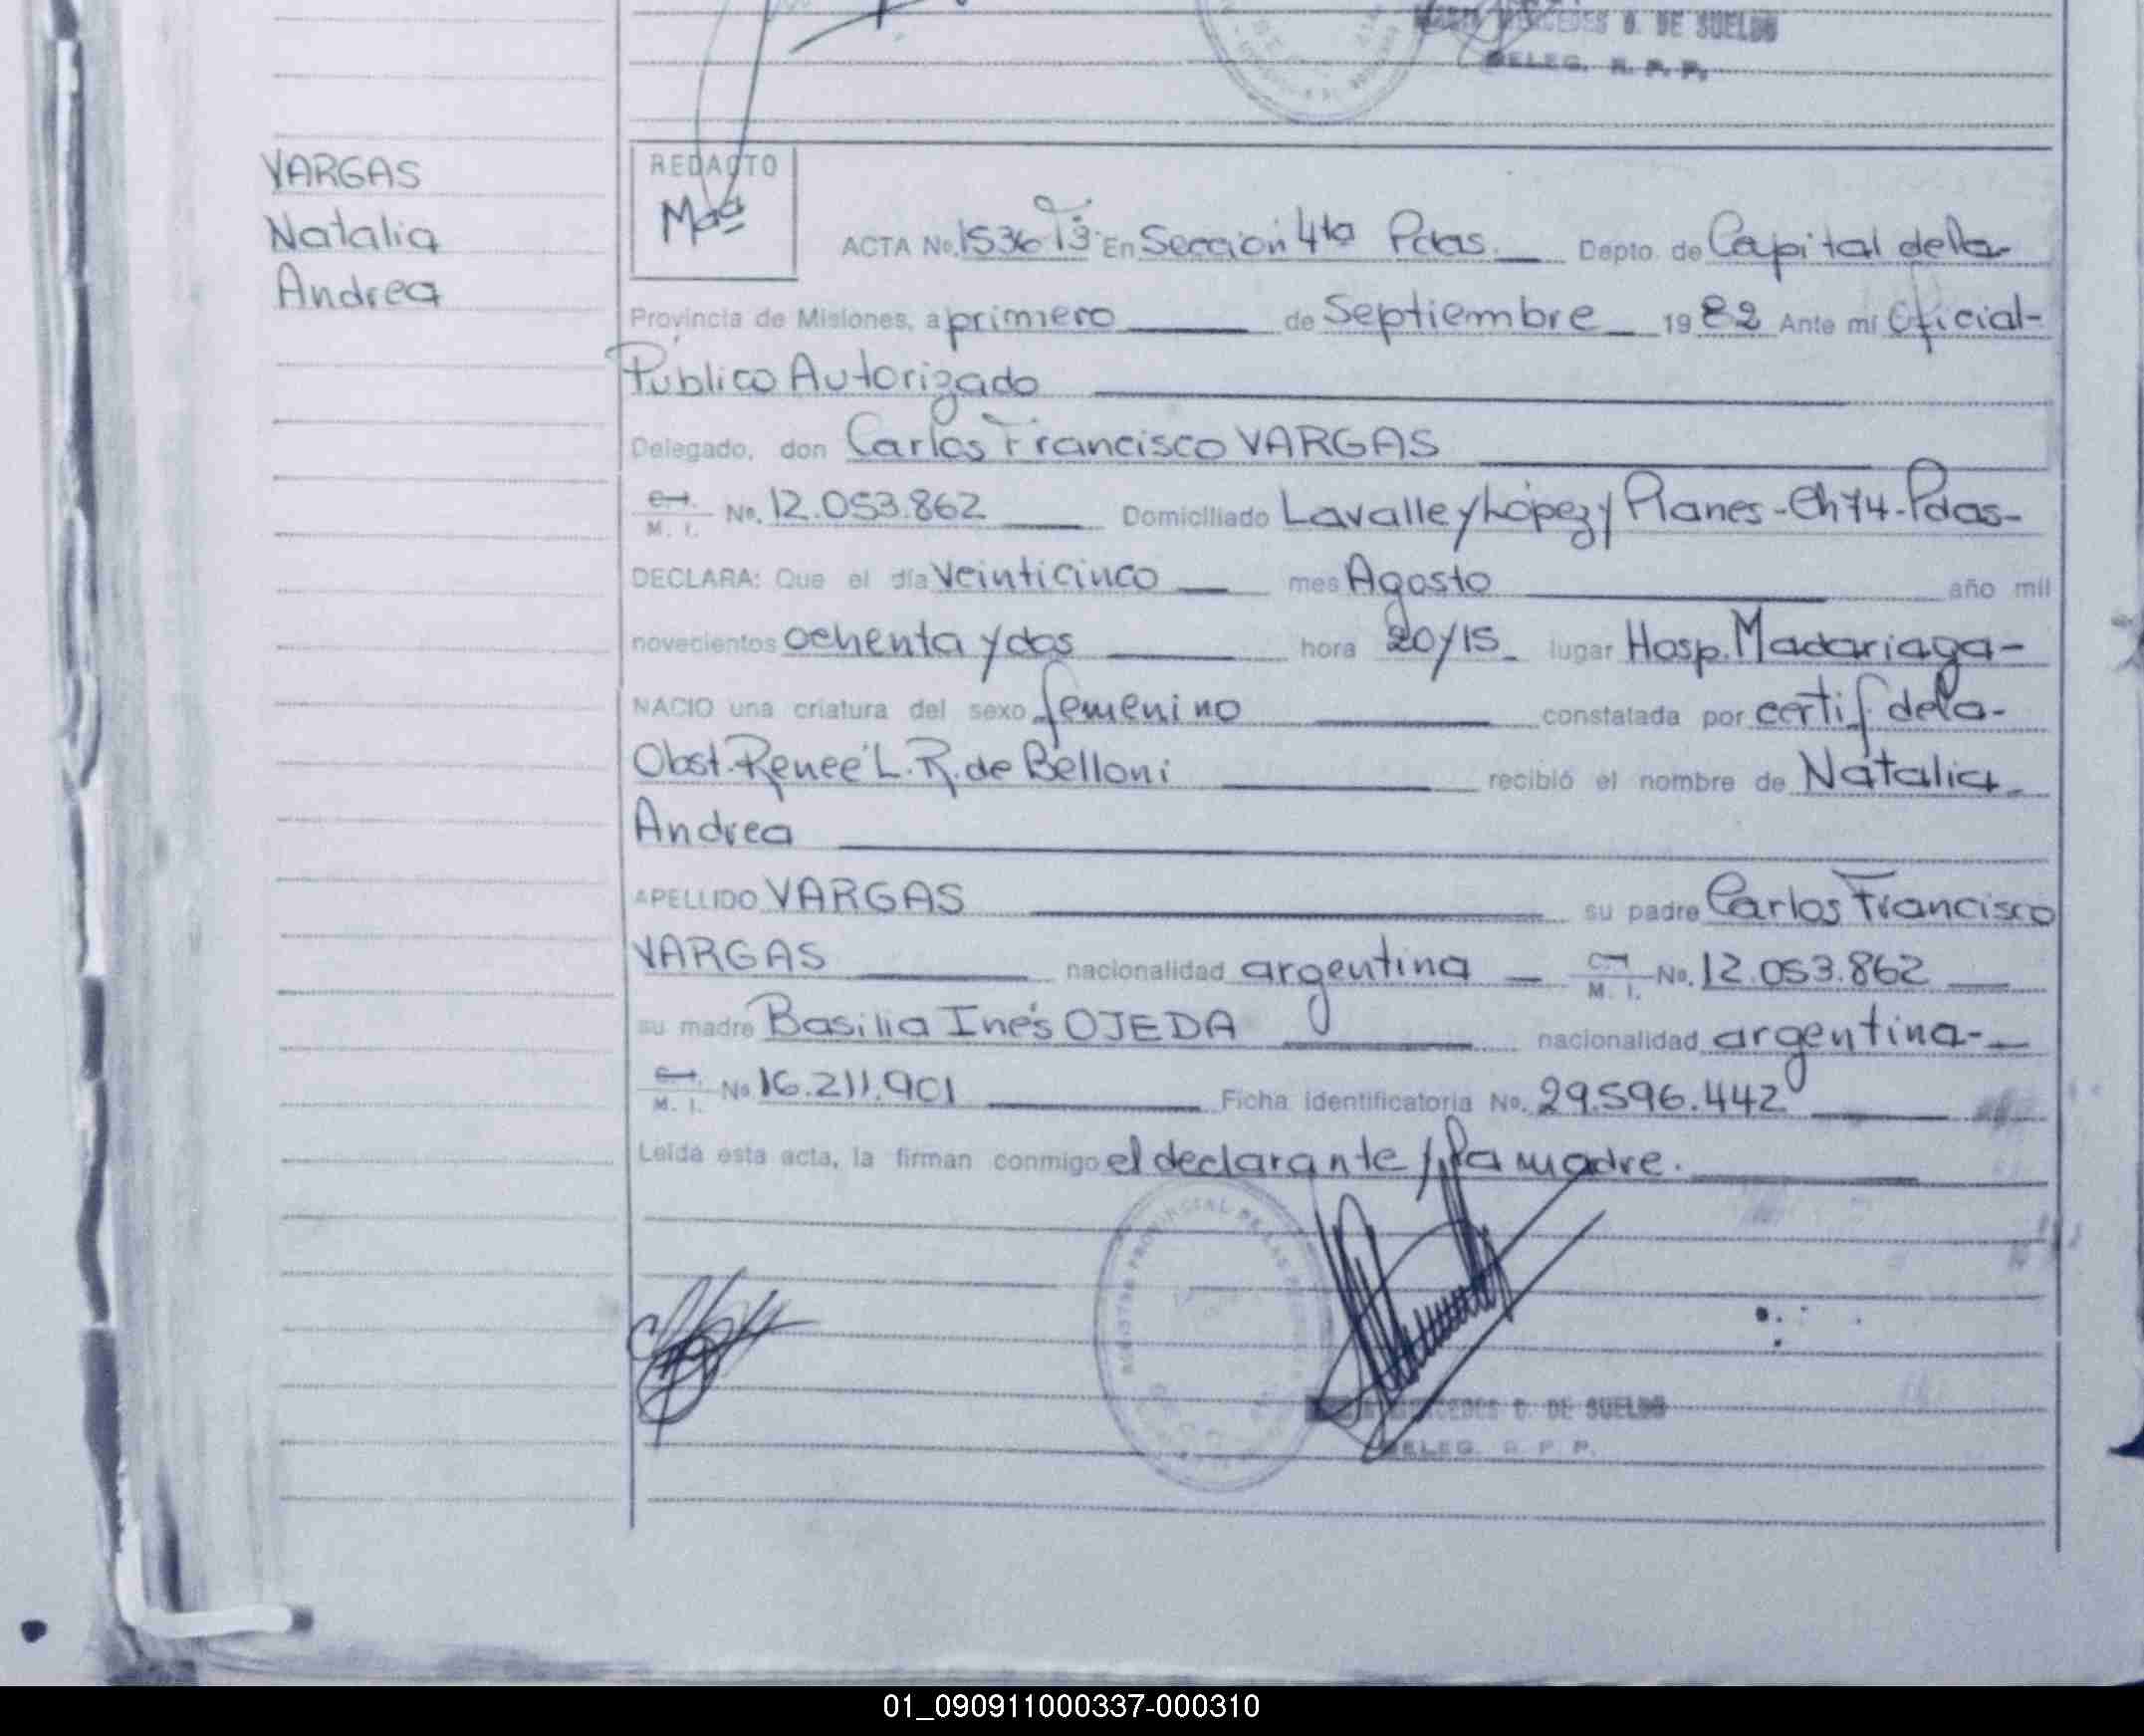 MERCEDES D. DE SUELDO
DELEG. R. P. P.
VARGAS
Natalia
Andrea
REDACTO
ACTA No. 1536 Tº3 En Sección 4ta Pdas. Depto. de Capital de la
Provincia de Misiones, a primero de Septiembre 1982 Ante mí Oficial-
Público Autorizado
Delegado, don Carlos Francisco VARGAS
C.I.
M. I. No. 12.053.862 Domiciliado Lavalle y López y Planes-Ch 74-Pdas-
DECLARA: Que el día veinticinco mes Agosto año mil
novecientos ochenta y dos hora 20/15 lugar Hosp. Madariaga-
NACIO una criatura del sexo femenino constatada por certif de la-
Obst. Reneé L. R. de Belloni recibió el nombre de Natalia
Andrea
APELLIDO VARGAS su padre Carlos Francisco
VARGAS nacionalidad argentina C.I. M. I. No. 12.053.862
su madre Basilia Inés OJEDA nacionalidad argentina-
C.I. M. I. No 16.211.901 Ficha identificatoria No. 29.596.442
Leída esta acta, la firman conmigo el declarante y la madre.
REGISTRO PROVINCIAL DE LAS PERSONAS
MERCEDES D. DE SUELDO
DELEG. R. P. P.
01_090911000337-000310